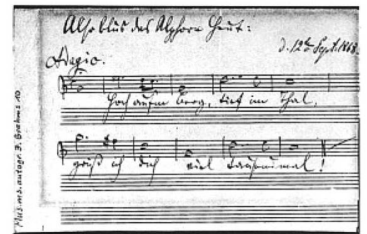 Also blus das Alphorn heut:
d. 12ten Sept. 1868.
Adagio.
Hoch aufm Berg, tief im Thal,
grüß ich dich viel tausendmal!
Mus. ms. autogr. J. Brahms 10